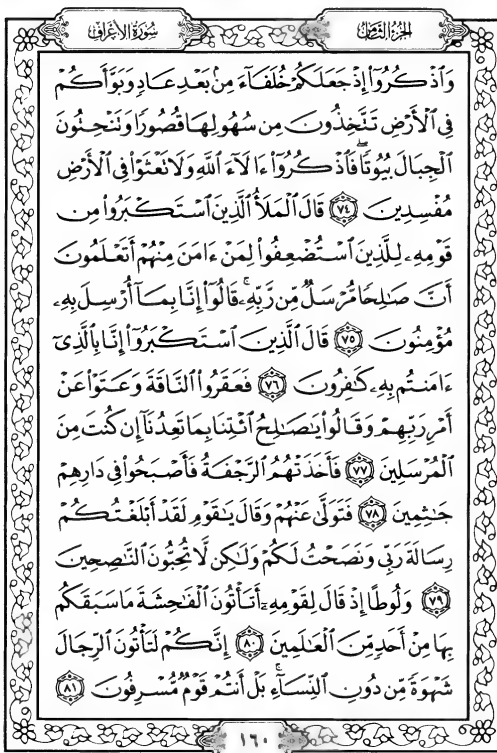 الجزء الثامن
سورة الأعراف
وَاذْكُرُوا إِذْ جَعَلَكُمْ خُلَفَاءَ مِنْ بَعْدِ عَادٍ وَبَوَّأَكُمْ
فِي ٱلْأَرْضِ تَتَّخِذُونَ مِن سُهُولِهَا قُصُورًا وَتَنْحِتُونَ
ٱلْجِبَالَ بُيُوتًا ۖ فَٱذْكُرُوٓا۟ ءَالَآءَ ٱللَّهِ وَلَا تَعْثَوْا۟ فِى ٱلْأَرْضِ
مُفْسِدِينَ ٧٤ قَالَ ٱلْمَلَأُ ٱلَّذِينَ ٱسْتَكْبَرُوا۟ مِن
قَوْمِهِۦ لِلَّذِينَ ٱسْتُضْعِفُوا۟ لِمَنْ ءَامَنَ مِنْهُمْ أَتَعْلَمُونَ
أَنَّ صَـٰلِحًا مُّرْسَلٌ مِّن رَّبِّهِۦ ۚ قَالُوٓا۟ إِنَّا بِمَآ أُرْسِلَ بِهِۦ
مُؤْمِنُونَ ٧٥ قَالَ ٱلَّذِينَ ٱسْتَكْبَرُوٓا۟ إِنَّا بِٱلَّذِىٓ
ءَامَنتُم بِهِۦ كَـٰفِرُونَ ٧٦ فَعَقَرُوا۟ ٱلنَّاقَةَ وَعَتَوْا۟ عَنْ
أَمْرِ رَبِّهِمْ وَقَالُوا۟ يَـٰصَـٰلِحُ ٱئْتِنَا بِمَا تَعِدُنَآ إِن كُنتَ مِنَ
ٱلْمُرْسَلِينَ ٧٧ فَأَخَذَتْهُمُ ٱلرَّجْفَةُ فَأَصْبَحُوا۟ فِى دَارِهِمْ
جَـٰثِمِينَ ٧٨ فَتَوَلَّىٰ عَنْهُمْ وَقَالَ يَـٰقَوْمِ لَقَدْ أَبْلَغْتُكُمْ
رِسَالَةَ رَبِّى وَنَصَحْتُ لَكُمْ وَلَـٰكِن لَّا تُحِبُّونَ ٱلنَّـٰصِحِينَ
٧٩ وَلُوطًا إِذْ قَالَ لِقَوْمِهِۦٓ أَتَأْتُونَ ٱلْفَـٰحِشَةَ مَا سَبَقَكُم
بِهَا مِنْ أَحَدٍ مِّنَ ٱلْعَـٰلَمِينَ ٨٠ إِنَّكُمْ لَتَأْتُونَ ٱلرِّجَالَ
شَهْوَةً مِّن دُونِ ٱلنِّسَآءِ ۚ بَلْ أَنتُمْ قَوْمٌ مُّسْرِفُونَ ٨١
١٦٠